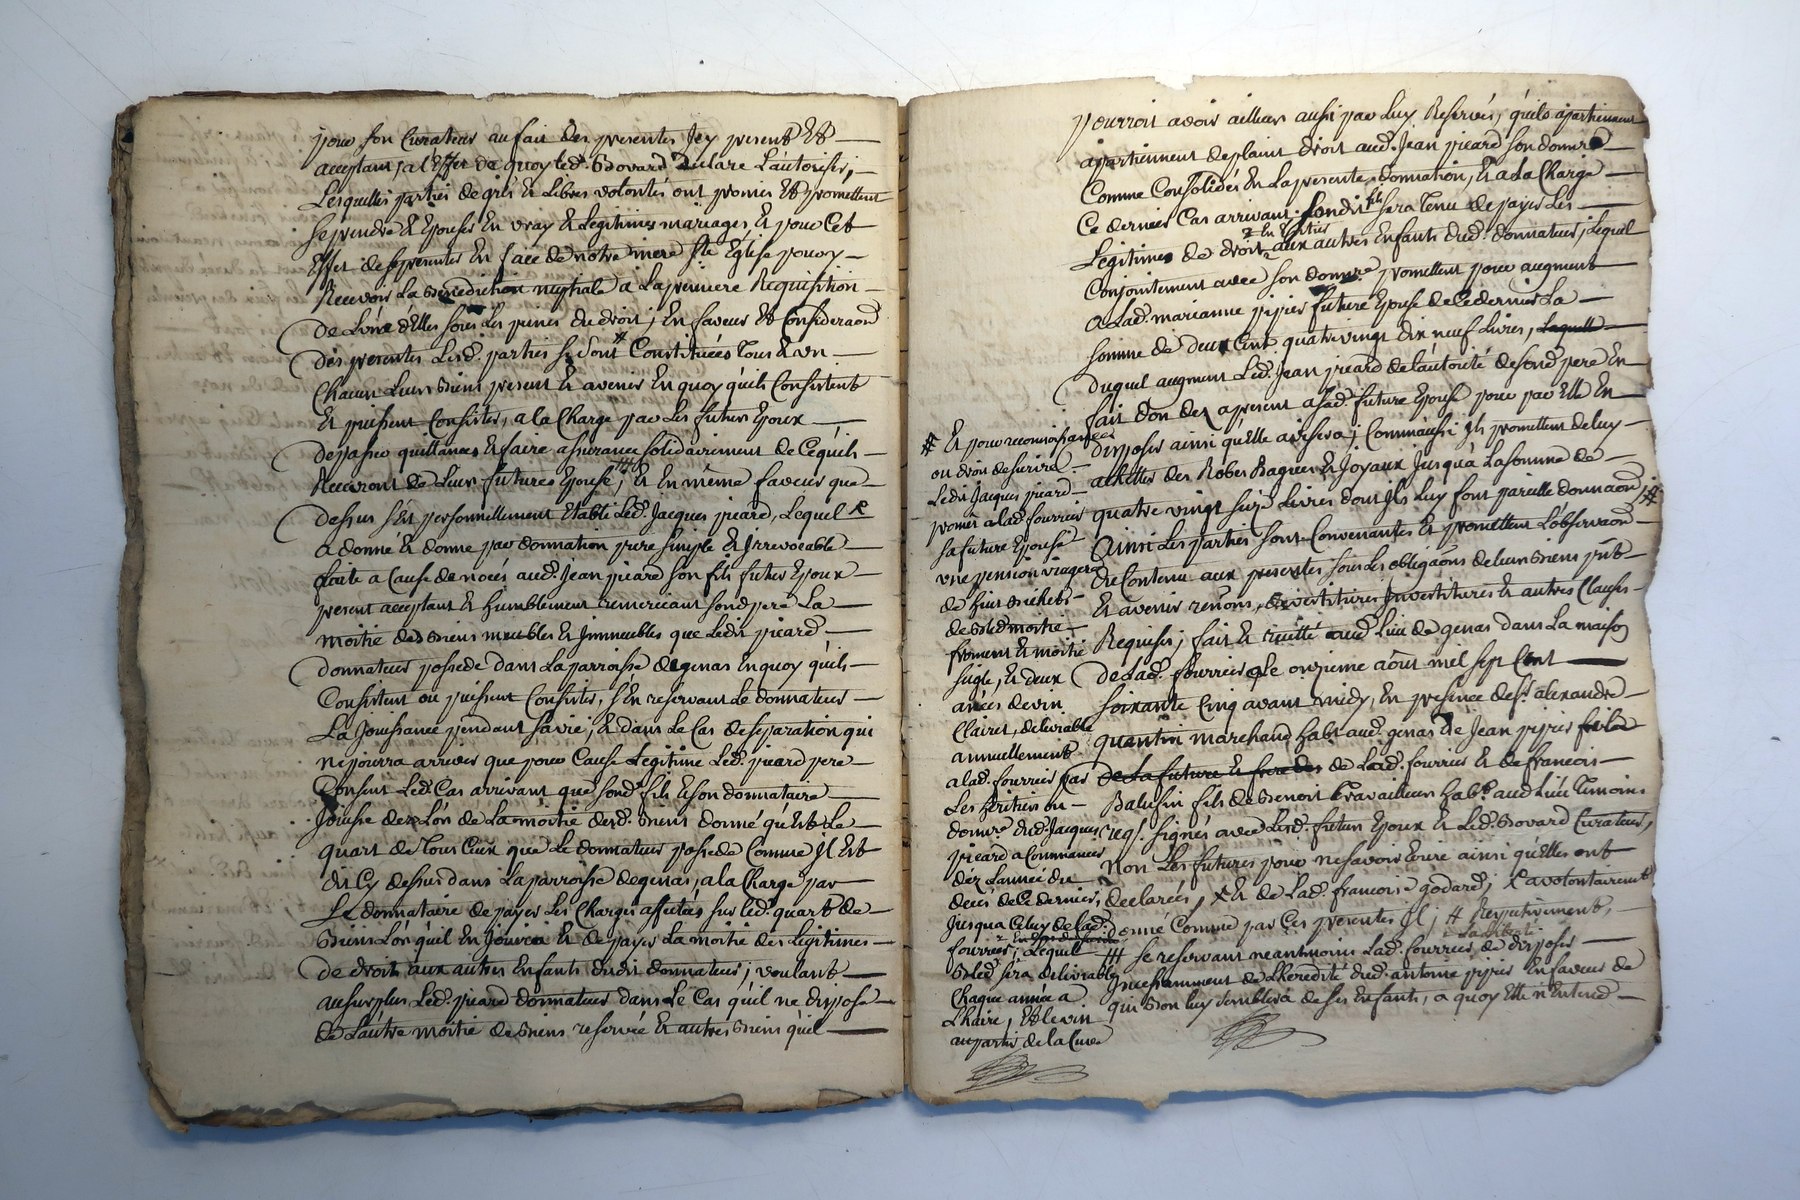 pour son Curateur au fait des presentes Icy present Et
acceptant, a l'Effet de quoy led. Bovard declare L'autoriser,
Lesquelles parties de grés Et Libres volontés ont promis Et promettent
Se prendre Et Epouser En vray Et Legitimes mariages, Et pour Cet
Effet Se presenter En face de notre mere Ste Eglise pour y
Recevoir La Benediction nuptiale a La premiere Requisition
de L'une d'Elles sous Les peines du droit; En faveur Et Consideraon
des presentes Lesd. parties Se Sont # Constituées Tous Et un
Chacun Leurs Biens present Et avenir En quoy qu'ils Consistent
Et puissent Consister, a la Charge par Les futurs Epoux
de passer quittances Et faire assurance solidairement de Ce qu'ils
Recevront de Leurs futures Epouse, ## Et En même faveur que
dessus S'est personnellement Etabli Led. Jacques picard, Lequel x
a donné Et donne par donnation pure simple Et Irrevocable
faite a Cause de noces aud. Jean picard Son fils futur Epoux
present acceptant Et humblement remerciant Sond pere La
moitié des Biens meubles Et Immeubles que Ledit picard
donnateur possede dans La parroisse de genas En quoy qu'ils
Consistent ou puissent Consister, S'En reservant Le donnateur
La Jouissance pendant Sa vie, Et dans Le Cas de Separation qui
ne pourra arriver que pour Cause Legitime Led. picard pere
Consent Led. Cas arrivant que Sond. fils Et Son donnataire
Jouisse dez Lors de La moitié desd. Biens donné qu'Est Le
quart de Tous Ceux que Le donnateur possede Comme Il Est
dit Cy dessus dans La parroisse de genas, a la Charge par
Le donnataire de payer Les Charges affectées Sur Led. quart de
Biens Lors qu'il En Jouira Et de payer La moitié des Legitimes
de droit aux autres Enfants dudit donnateur; voulant
au surplus Led. picard donnateur dans Le Cas qu'il ne dispose
de L'autre moitié de Biens reservée Et autres Biens qu'il
pourroit avoir ailleurs aussi par Luy Reservés, qu'ils apartiennent
apartiennent de plaint droit aud. Jean picard Son donnre
Comme Consolidés En La presente donnation, Et a La Charge
Ce dernier Cas arrivant, sondit fils Sera Tenu de payer Les
Legitimes de droit En Entier aux autres Enfants dud. donnateur; Lequel
Conjointement avec Son donnre promettent pour augment
a Lad. marianne pipier future Epouse de Ce dernier La
Somme de deux Cent quatre vingt dix neuf Livres, Laquelle
duquel augment Led. Jean picard de L'autorité de Sond. pere En
fait don dez apresent a Sad. future Epouse pour par Elle En
disposer ainsi qu'Elle avisera; Comm'aussi Ils promettent de Luy
achetter des Robes Bagues Et Joyaux Jusqu'a La Somme de
quatre vingt seize Livres dont Ils Luy font pareille donnaon; #
Ainsi Les parties Sont Convenantes Et promettent L'observaon
du Contenu aux presentes Sous Les obligaons de Leurs Biens pnt
Et avenir renons, devestitures Investitures Et autres Clauses
Requises; fait Et recitté aud. Lieu de genas dans La maison
de Lad. fourrier Le onzieme aoust mil Sept Cent
Soixante Cinq avant midy, En presence de Sr. alexandre
quantin marchand habt aud. genas de Jean pipier fils
de La future Et frere des de Lad. fourrier Et de francois
Balusin fils de Benoit Travailleur habt. aud Lieu Temoins
reqs. Signés avec Lesd. futurs Epoux Et Led. Bovard Curateur,
non Les futures pour ne savoir Ecrire ainsi qu'Elles ont
declarées, x Et de Lad. francoise godard; x a volontairement
donné Comme par Ces presentes Il; # Respectivement,
## Se reservant neantmoins Lad. fourrier La Liberté de disposer
Incessamment de L'heredité dud. antoine pipier En faveur de
qui Bon Luy Semblera de Ses Enfants, a quoy Elle n'Entend
# Et pour reconnoissances
ou droit de Survie
Ledit Jacques picard
promet a Lad. fourrier
Sa future Epouse
une pension viagere
de huit Bichets
de Bled moitié
froment Et moitié
Seigle, Et deux
anées de vin
Clairet, delivrable
annuellement
a Lad. fourrier par
Les heritiers ou
donnre dud. Jacques
picard a Commencer
dez L'année du
decés de Ce dernier,
Jusqu'a Celuy de Lad.
fourrier, Lequel
Bled Sera delivrable
Chaque année a
L'haire, Et Le vin
au partir de la Cuve